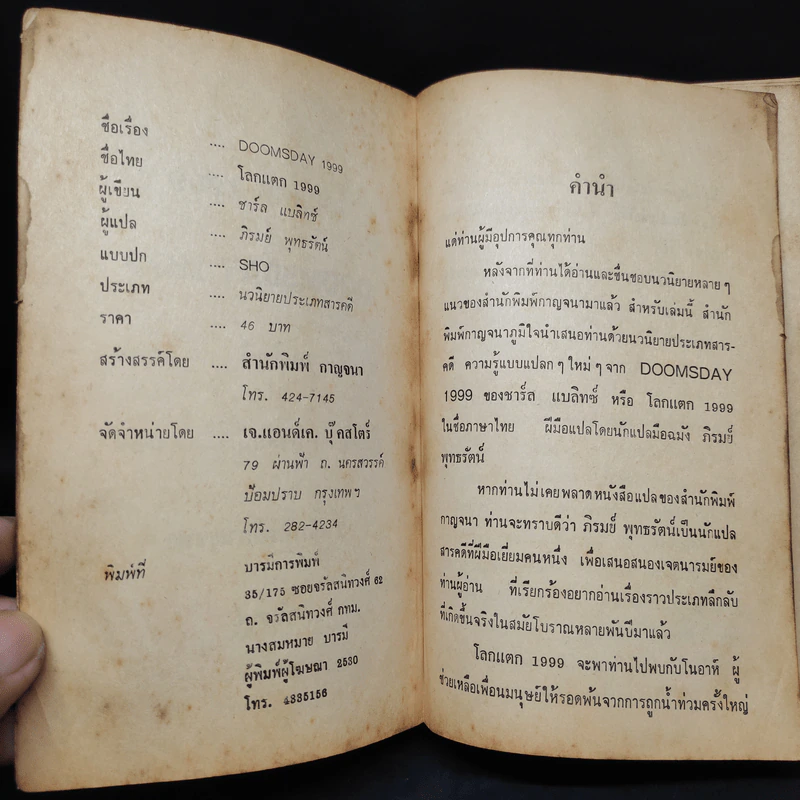 ชื่อเรื่อง .... DOOMSDAY 1999
ชื่อไทย .... โลกแตก 1999
ผู้เขียน .... ชาร์ล แบลิทซ์
ผู้แปล .... ภิรมย์ พุทธรัตน์
แบบปก .... SHO
ประเภท .... นวนิยายประเภทสารคดี
ราคา .... 46 บาท
สร้างสรรค์โดย .... สำนักพิมพ์ กาญจนา
โทร. 424-7145
จัดจำหน่ายโดย .... เจ.แอนด์เค. บุ๊คสโตร์
79 ผ่านฟ้า ถ. นครสวรรค์
ป้อมปราบ กรุงเทพฯ
โทร. 282-4234
พิมพ์ที่ บารมีการพิมพ์
35/175 ซอยจรัลสนิทวงศ์ 62
ถ. จรัลสนิทวงศ์ กทม.
นางสมหมาย บารมี
ผู้พิมพ์ผู้โฆษณา 2530
โทร. 4335156
คำนำ
แด่ท่านผู้มีอุปการคุณทุกท่าน
หลังจากที่ท่านได้อ่านและชื่นชอบนวนิยายหลายๆ
แนวของสำนักพิมพ์กาญจนามาแล้ว สำหรับเล่มนี้ สำนัก
พิมพ์กาญจนาภูมิใจนำเสนอท่านด้วยนวนิยายประเภทสาร-
คดี ความรู้แบบแปลกๆ ใหม่ๆ จาก DOOMSDAY
1999 ของชาร์ล แบลิทซ์ หรือ โลกแตก 1999
ในชื่อภาษาไทย ฝีมือแปลโดยนักแปลมือฉมัง ภิรมย์
พุทธรัตน์
หากท่านไม่เคยพลาดหนังสือแปลของสำนักพิมพ์
กาญจนา ท่านจะทราบดีว่า ภิรมย์ พุทธรัตน์เป็นนักแปล
สารคดีที่ฝีมือเยี่ยมคนหนึ่ง เพื่อเสนอสนองเจตนารมย์ของ
ท่านผู้อ่าน ที่เรียกร้องอยากอ่านเรื่องราวประเภทลึกลับ
ที่เกิดขึ้นจริงในสมัยโบราณหลายพันปีมาแล้ว
โลกแตก 1999 จะพาท่านไปพบกับโนอาห์ ผู้
ช่วยเหลือเพื่อนมนุษย์ให้รอดพ้นจากการถูกน้ำท่วมครั้งใหญ่